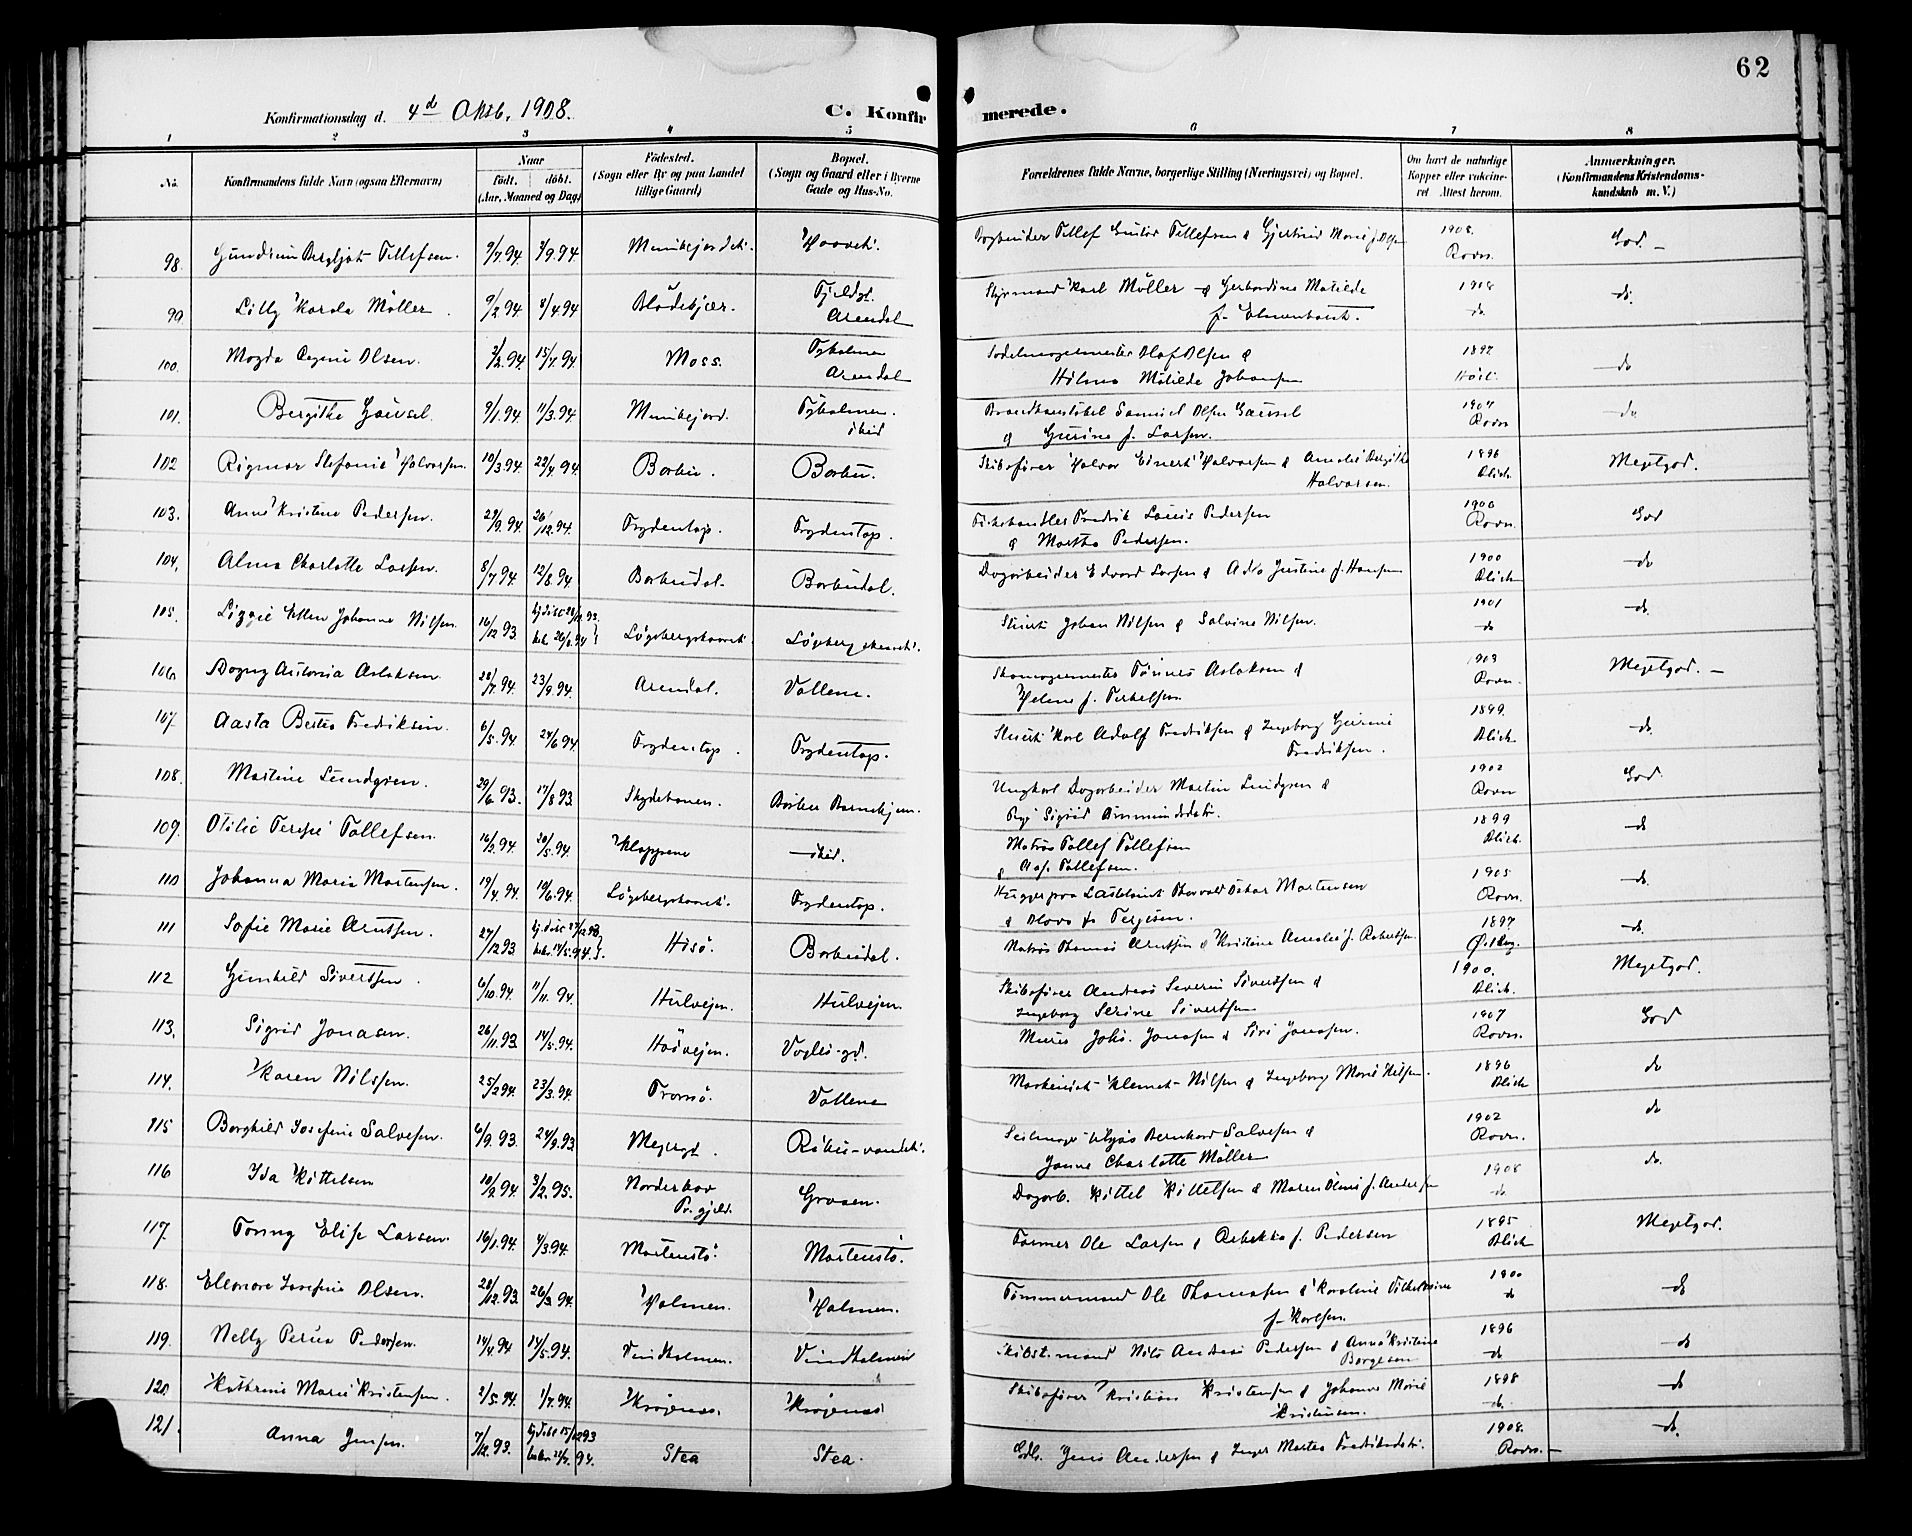 62
Konfirmationsdag d. 4de Oktb. 1908.
C. Konfirmerede.
1 2 3 4 5 6 7 8
No. Konfirmandens fulde Navn (ogsaa Efternavn) Naar født. døbt. (Aar, Maaned og Dag) Fødested. (Sogn eller By og paa Landet tillige Gaard) Bopæl. (Sogn og Gaard eller i Byerne Gade og Hus-No. Forældrenes fulde Navne, borgerlige Stilling (Næringsvei) og Bopæl. Om havt de naturlige Kopper eller vaccineret Attest herom. Anmærkninger. (Konfirmandens Kristendomskundskab m. V.)
98. Tellefsen. 9/7.94 /9.94 Dagarbeider Tellef Tellefsen & Marie f. Olsen 1908. Rovn. God. —
99 Lilly Karola Møller 9/2.94 8/4.94 Blødekjær. Arendal Styrmand Karl Møller & Matilde f. 1908 do. do.
100. Magda Olsen. 3/2.94. 15/7.94. Moss. Tyholmen Arendal Sadelmagermester Olaf Olsen & Hilma Matilde Johansen 1897 do
101. Bergithe Gausel 9/1.94 11/3.94 Tyholmen. ibid Samuel Olsen Gausel & Gurine f. Larsen. 1907 Rovn do
102 Rigmor Stefanie Halvorsen. 10/3.94 22/4.94 Barbu. Barbu. Skibsfører Halvor Einert Halvorsen & Amalie Bergithe Halvorsen. 1896 Blich. Megetgod.
103. Anna Kristine Pedersen. 29/9.94 26/12.94. Frydentop. Frydentop. Fiskehandler Fredrik Louis Pedersen & Martha Pedersen. 1900 Rovn. God
104. Alma Charlotte Larsen. 8/7.94 12/8.94 Barbudal. Barbudal. Dagarbeider Edvard Larsen & Ada Justine f. Hansen 1900 Blich do
105. Lizzie Ellen Johanne Nilsen. 16/12 93 hj.døbt 28/12 93. bek. 26/8.94 Løgebergskaaret. Løgebergskaaret. Stuert Johan Nilsen & Salvine Nilsen. 1901 do do.
106 Dagny Antonia Aslaksen. 28/7.94. 23/9.94. Arendal. Vallene. Skomagermester Tønnes Aslaksen & Helene f. Terkelsen. 1903 Rovn. Megetgod. —
107 Aasta Bertea Fredriksen. 6/5.94. 24/6 94 Frydentop. Frydentop. Stuert Karl Adolf Fredriksen & Ingeborg Gurine Fredriksen. 1899. Blich do.
108. Martine Lundgren. 29/6.93. 17/8 93. Skydebanen. Barbu Barnehjem. Ungkarl Dagarbeider Martin Lundgren & Pige Sigrid 1902 Rovn God.
109. Otilie Terese Tallefsen. 16/2.94. 20/5.94. Kloppene ibid. Matros Tallef Tallefsen & Aas. Tallefsen. 1899 Blich. do
110 Johanna Marie Martensen. 19/4.94 10/6.94. Løgebergskaaret. Frydentop. Thorvald Oskar Martensen & Olava f. Tergesen. 1905 Rovn. do.
111 Sofie Marie Arntsen. 27/12 93 hj.døbt 27/12 93. bek. 14/5.94. Hisø. Barbudal. Matros Thomas Arntsen & Kristine Amalie f. Robertsen 1897 do.
112 Gunhild Sivertsen. 6/10.94 11/11.94. Hulvejen. Hulvejen. Skibsfører Andreas Severin Sivertsen & Ingeborg Serine Sivertsen 1900. Blich. Megetgod.
113. Sigrid Jonasen. 26/11.93 14/5.94. Haavejen. Murer Johs. Jonasen & Siri Jonasen. 1907 Rovn. God
114. Karen Nilssen. 25/2 94. 23/3.94. Tromsø. Vallene Maskinist Klemet Nilsen & Ingeborg Marie Nilsen. 1896 Blich do
115 Borghild Josefine Salvesen. 6/9.93. 24/9.93 Seilmager Bernhard Salvesen & Janna Charlotte Møller 1902 Rovn. do
116 Ida Kittelsen 10/2.94 3/2.95. Norderhov Pr.gjeld. Grasen. Dagarb. Kittel Kittelsen & Maren Oline f. Andersen 1908 do do.
117. Fanny Elise Larsen. 16/1.94. 4/3.94. Martensø. Martensø. Tømmer Ole Larsen & Rebekka f. Pedersen 1895 Blich Megetgod.
118. Eleonore Josefine Olsen. 28/12.93. 26/3.94. Holmen. Holmen. Tømmermand Ole Thomassen & Karoline Vilhelmine f. Karlsen. 1900 do do
119. Nelly Petrea Pedersen. 14/4.94 14/5.94. Vindholmen. Vindholmen Skibstømmermand Nils Andreas Pedersen & Anna Kristine Børgesen 1896 do do
120 Kathrine Marie Kristensen. 2/5.94. 1/7.94. Krøgenes. Krøgenes Skibsfører Kristian Kristensen & Johanne Marie Kristensen. 1898 do. do
121. Anna Jensen. 7/12.93. hj.døbt 15/12 93 bek. 22/7.94. Stea Stea. Jens Andersen & Inger Martea 1908. Rovn. — do.